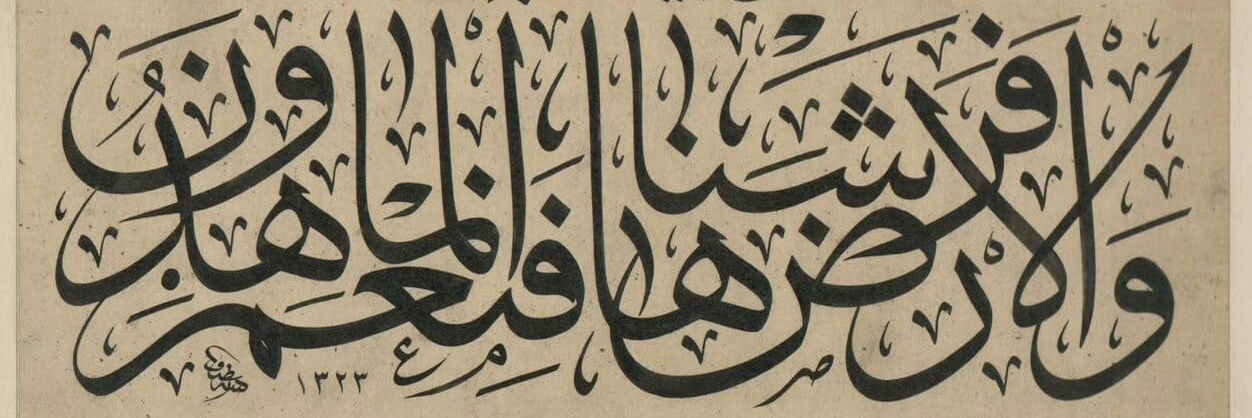 وَالْاَرْضَ فَرَشْنَاهَا فَنِعْمَ الْمَاهِدُونَ
١٣٢٣